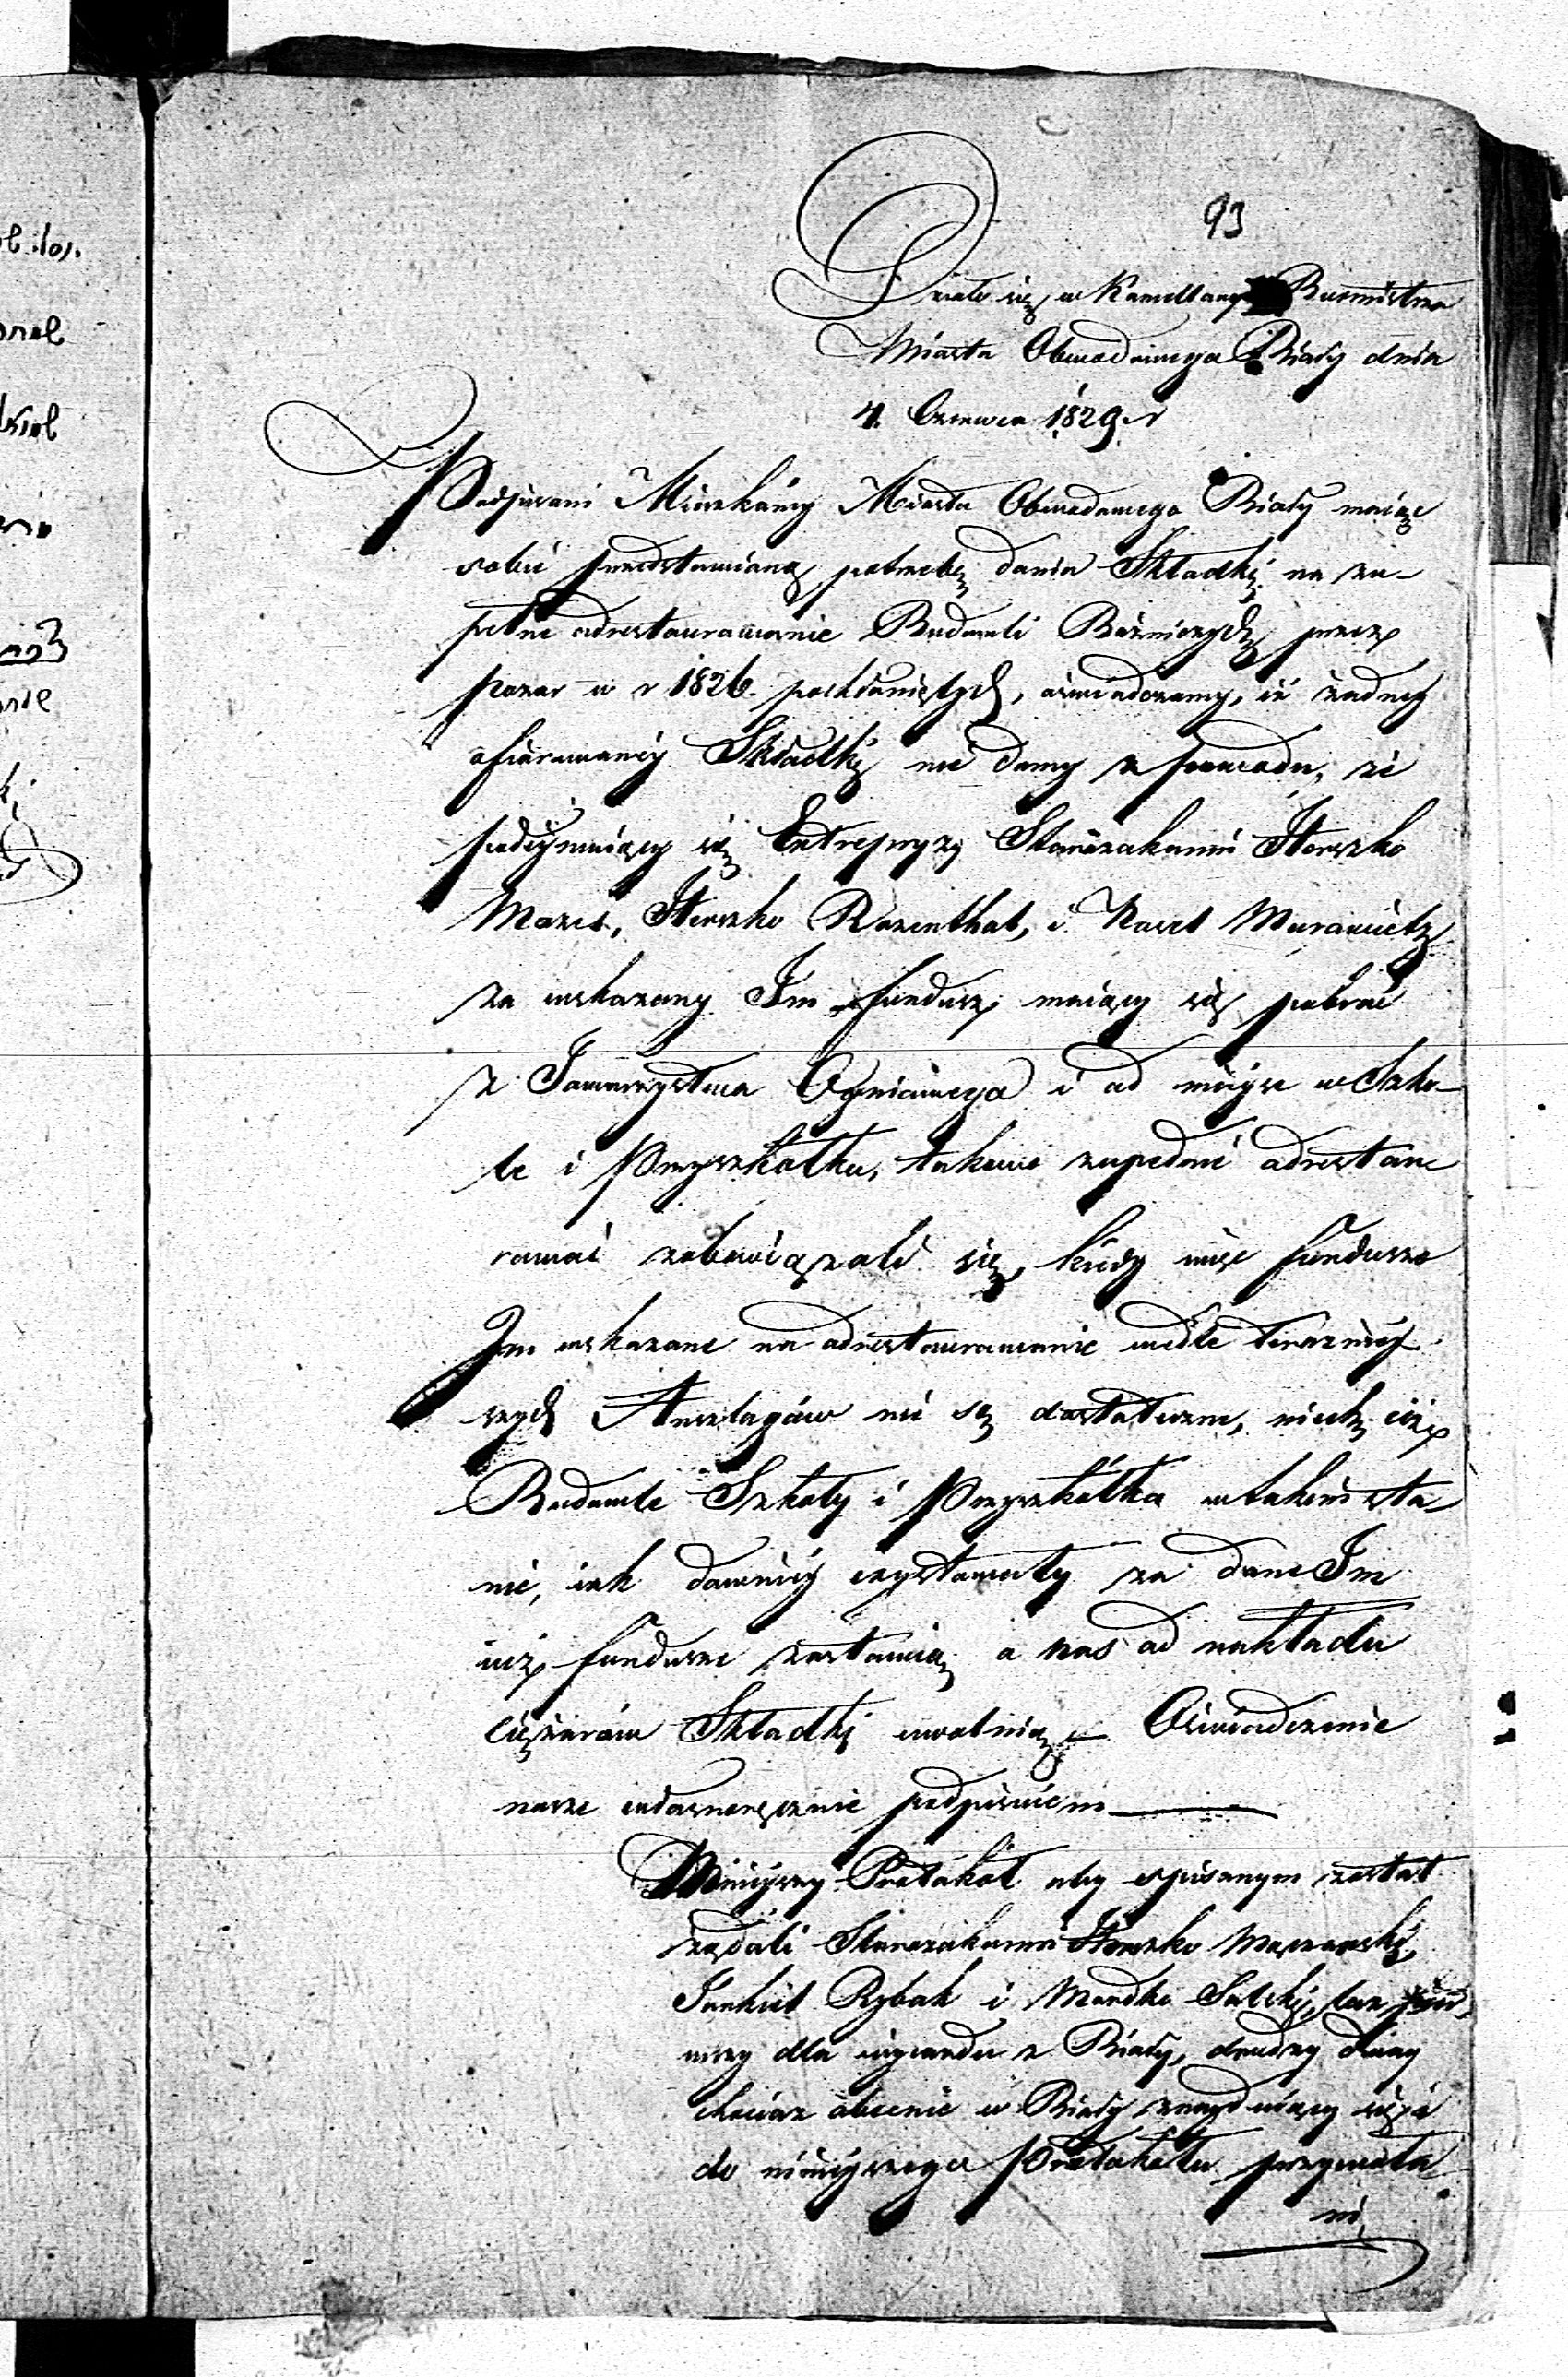 93
Działo się w Kancellaryi Burmistrza
Miasta Obwodowego Biały dnia
4. Czerwca 1829 r
Podpisani Mieszkańcy Miasta Obwodowego Biały maiąc
sobie przedstawioną potrzebę dania Składki na zu-
pełne odrestaurowanie Budowli Bożniczych przez
pożar w r 1826. pochłoniętych, oświadczamy, iż żadney
ofiarowaney Składki nie damy z powodu, że
podeymuiący się Entrepryzy Starozakonni Herszko
Mozes, Herszko Rozenthal, i Josel Murawietz
za wskazany Im fundusz maiący się pobrać
z Towarzystwa Ogniowego i od mieysc w Szko-
le i Przyszkółku, takowe zupełnie odrestau
rować zobowiązali się, kiedy więc fundusze
Im wskazane na odrestaurowanie wedle terazniey-
szych Anszlagów nie są dostateczne, niech iuż
Budowle Szkoły i Przyszkółka w takim sta
nie, iak dawniey exystowały za dane Im
iuż fundusze zostawią a nas od nakładu
ciężarów Składki uwolnią – Oświadczenie
nasze własnoręcznie podpisuiem
Ninieyszy Protokół aby spisanym został
żądali Starozakonni Herszko
Jankiel Rybak i Mordko lecz
wszy dla wyiazdu z Biały, drudzy dway
chociaż obecnie w Biały znayduiący się
do ninieyszego Protokółu przywoła
ni